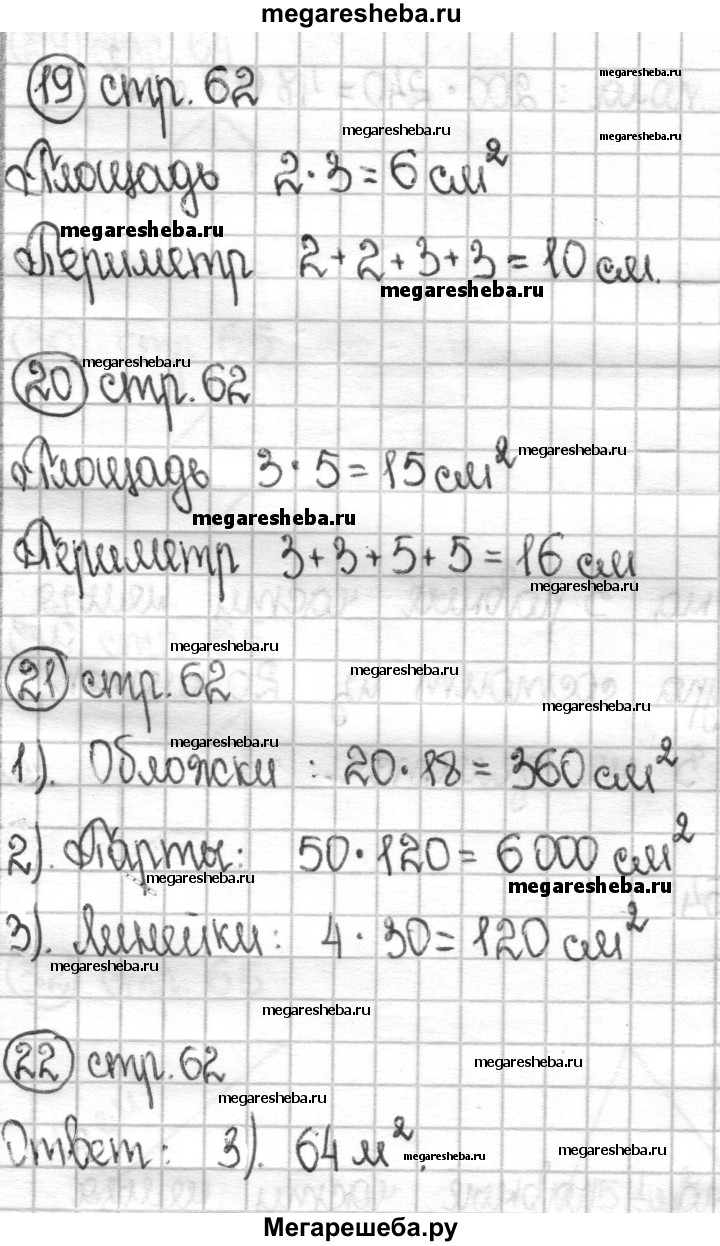 megaresheba.ru
19 стр. 62
megaresheba.ru
megaresheba.ru
megaresheba.ru
Площадь 2·3=6 см²
megaresheba.ru
Периметр 2+2+3+3=10 см.
megaresheba.ru
megaresheba.ru
20 стр. 62
Площадь 3·5=15 см²
megaresheba.ru
megaresheba.ru
Периметр 3+3+5+5=16 см
megaresheba.ru
megaresheba.ru
21 стр. 62
megaresheba.ru
megaresheba.ru
megaresheba.ru
1). Обложки : 20·18=360 см²
2). Парты: 50·120=6 000 см²
megaresheba.ru
megaresheba.ru
3). Линейки: 4·30=120 см²
megaresheba.ru
megaresheba.ru
22 стр. 62
megaresheba.ru
megaresheba.ru
Ответ: 3). 64 м².
megaresheba.ru
megaresheba.ru
Мегарешеба.ру